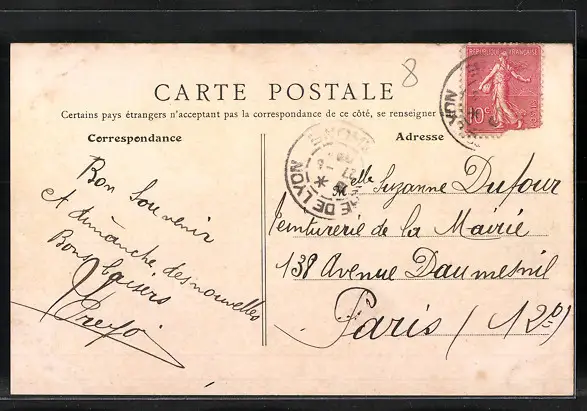 8
CARTE POSTALE
Certains pays étrangers n'acceptant pas la correspondance de ce côté, se renseigner
Correspondance
Adresse
REPUBLIQUE FRANÇAISE
10c
GARE DE LYON
LYON
Bon Souvenir
et dimanche, des nouvelles
Bons baisers
Melle Suzanne Dufour
Teinturerie de la Mairie
138 Avenue Daumesnil
Paris (12e)